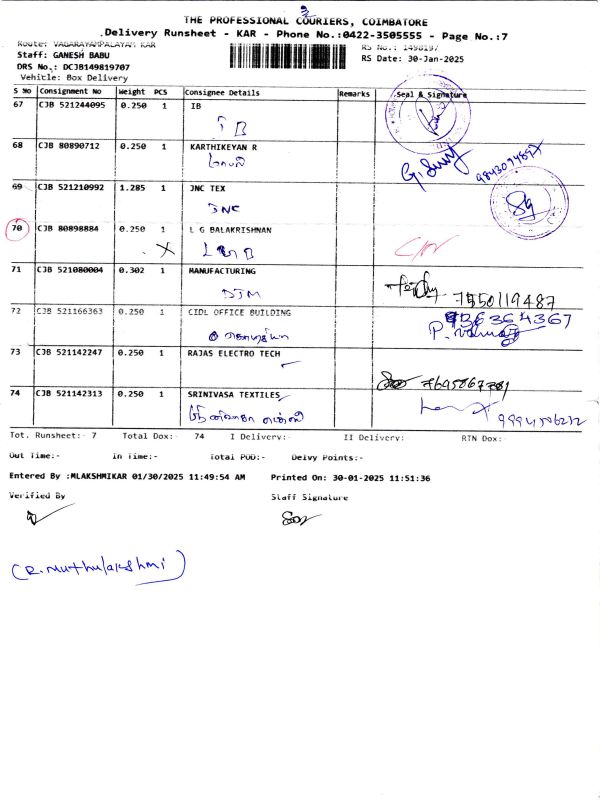 THE PROFESSIONAL COURIERS, COIMBATORE
Delivery Runsheet - KAR - Phone No.:0422-3505555 - Page No.:7
Route: VAGARAYAMPALAYAM KAR
RS No.: 1498197
Staff: GANESH BABU
RS Date: 30-Jan-2025
DRS No.: DCJB149819707
Vehicle: Box Delivery
S No Consignment No Weight PCS Consignee Details Remarks Seal & Signature
67 CJB 521244095 0.250 1 IB
IB
68 CJB 80890712 0.250 1 KARTHIKEYAN R
9843094897
69 CJB 521210992 1.285 1 JNC TEX
JNC
70 CJB 80898884 0.250 1 L G BALAKRISHNAN
X LGB
71 CJB 521080004 0.302 1 MANUFACTURING
DJM
7550119487
72 CJB 521166363 0.250 1 CIDL OFFICE BUILDING
73 CJB 521142247 0.250 1 RAJAS ELECTRO TECH
74 CJB 521142313 0.250 1 SRINIVASA TEXTILES
Tot. Runsheet:- 7 Total Dox:- 74 I Delivery:- II Delivery:- RTN Dox:-
Out Time:- In Time:- Total POD:- Delvy Points:-
Entered By :MLAKSHMIKAR 01/30/2025 11:49:54 AM Printed On: 30-01-2025 11:51:36
Verified By Staff Signature
(R. Muthulakshmi)